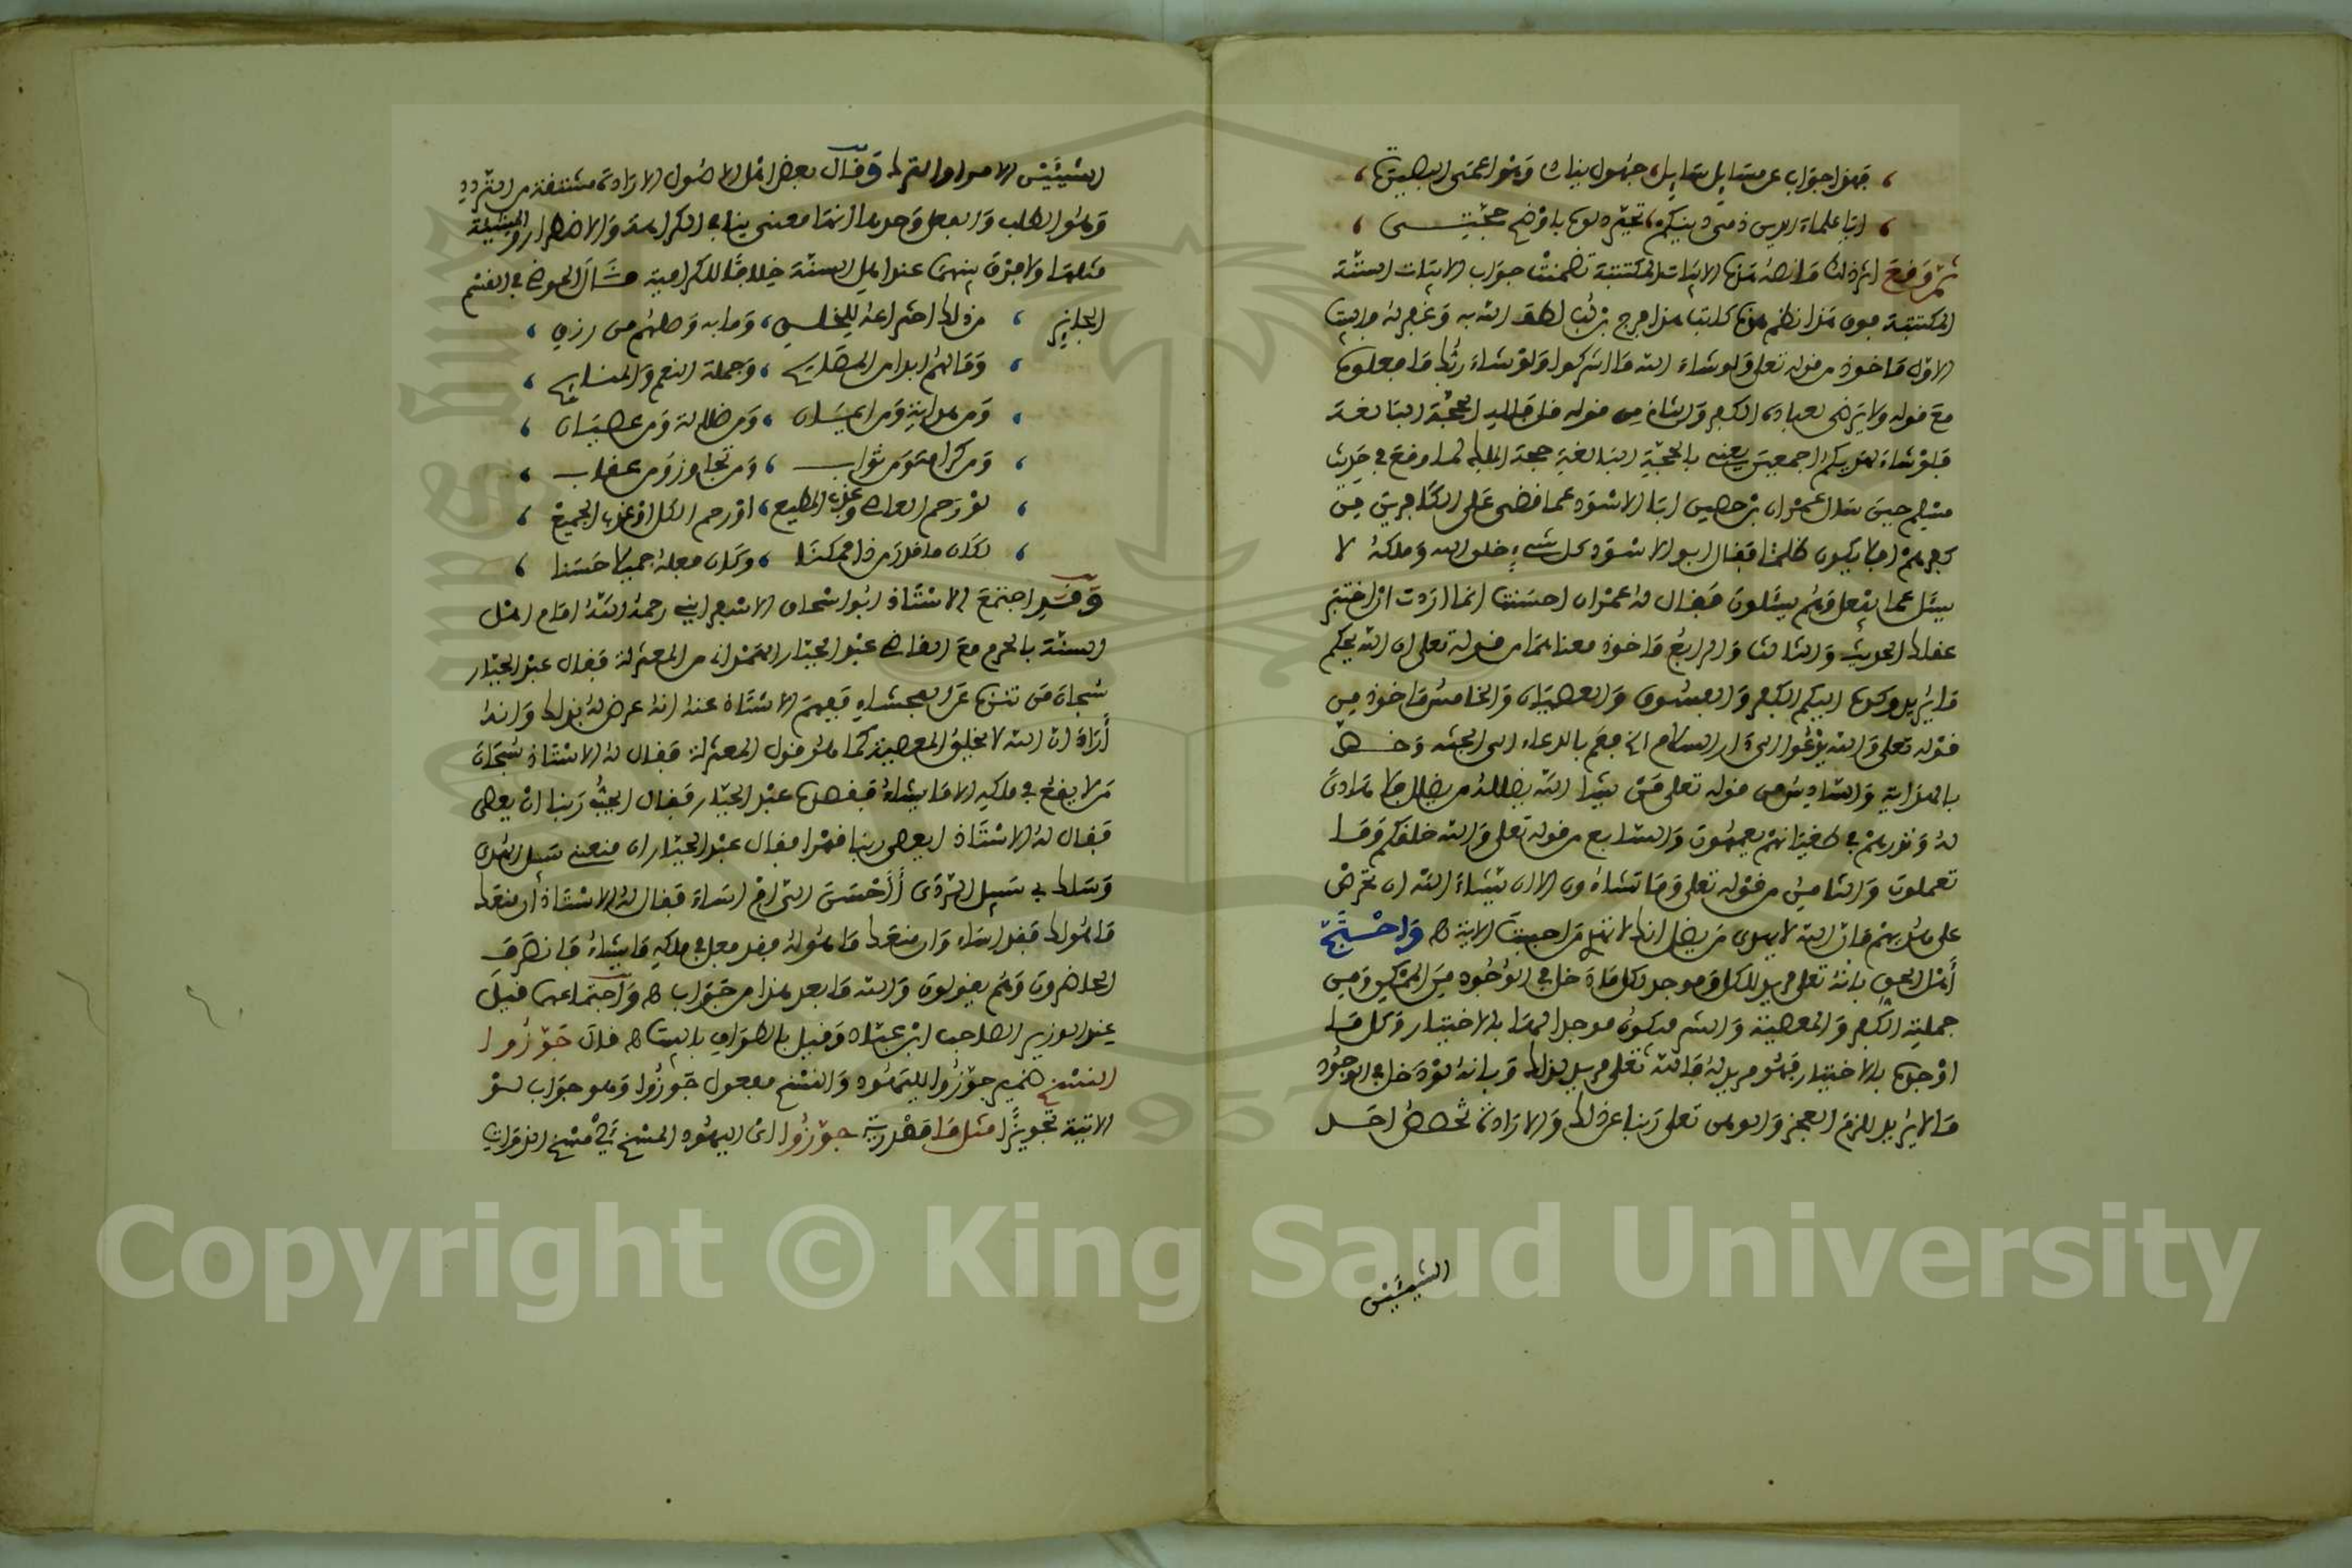 فهذا جواب عن مسايل سايل، جهول ينادي وهو أعمى البصيرة،
أيا علماء الدين ذمي دينكم، تحير دلوه بأوضح حجة
ثم وقع إثر ذلك ما نصه هذه الأبيات المكتتبة تضمنت جواب الأبيات الستة
المكتتبة فوق هذا نظم هذه كاتبا هذا فرج بن لب لطف الله به وغفر له والبيت
الأول مأخوذ من قوله تعلى ولو شاء الله ما أشركوا ولو شاء ربك ما فعلوه
مع قوله ولا يرضى لعباده الكفر والثاني من قوله قل فلله الحجة البالغة
فلو شاء لهديكم أجمعين يعني بالحجة البالغة حجة الملك كما وقع في حديث
مسلم حين سأل عمران بن حصين أبا الأسود عما قضى على الكافرين من
كفرهم أفلا يكون ظلما فقال أبو الأسود كل شيء خلق الله وملكه لا
يسئل عما يفعل وهم يسئلون فقال له عمران أحسنت إنما أردت أن أختبر
عقلك الحديث والثالث والرابع مأخوذ معناهما من قوله تعلى إن الله يحكم
ما يريد وكره إليكم الكفر والفسوق والعصيان والخامس مأخوذ من
قوله تعلى والله يدعوا إلى دار السلام الآية فعم بالدعاء إلى الجنة وخص
بالهداية والسادس من قوله تعلى من يشإ الله يضلله من يضلل فلا هادي
له ونذرهم في طغيانهم يعمهون والسابع من قوله تعلى والله خلقكم وما
تعملون والثامن من قوله تعلى وما تشاءون إلا أن يشاء الله إن تحرص
على هديهم فإن الله لا يهدي من يضل إنك لا تهدي من أحببت الآية ه واحتج
أهل الحق بأنه تعلى مريد للكل وموجد لكل ما دخل في الوجود من الممكن ومن
جملته الكفر والمعصية والله مكون موجد لهما بالاختيار وكل ما
أوجده بالاختيار فهو مريد له فالله تعلى مريد لذلك وبأنه لو دخل في الوجود
ما لا يريد للزم العجز والوهن تعلى ربنا عن ذلك والإرادة تخصص أحد
الشيئين
الشيئين الأمر أو الترك وقال بعض أهل الأصول الإرادة مشتقة من التردد
وهو الطلب والبعض وحدها أنها معنى ينافي الكراهة والاضطرار والمشيئة
مثلها ولا فرق بينهما عند أهل السنة خلافا للكرامية مثال الحوض في القسم
الجايز ، من ذلك اختراعه للخلق، وما به وصلهم من رزق ،
، وما لهم أبدا من المصالح ، وجملة النعم والمنايح ،
، ومن هداية ومن إيمان ، ومن ضلالة ومن عصيان ،
، ومن كرامة ومن ثواب ، ومن تجاوز ومن عقاب ،
، لو رحم العاصي وعذب المطيع، أو رحم الكل أو عذب الجميع ،
، لكان ما قلنا من ذا ممكنا ، وكان فعله جميلا حسنا ،
وقد اجتمع الأستاذ أبو إسحاق الإسفرايني رحمه الله إمام أهل
السنة بالحرم مع القاضي عبد الجبار الهمداني من المعتزلة فقال عبد الجبار
سبحان من تنزه عن الفحشاء ففهم الأستاذ عنه أنه عرض له بذلك وأنه
أراد أن الله لا يخلق المعصية كما هو قول المعتزلة فقال له الأستاذ سبحان
من لا يقع في ملكه إلا ما يشاء ففهمه عبد الجبار فقال أيحب ربنا أن يعصى
فقال له الأستاذ أيعصى ربنا قهرا فقال عبد الجبار إن منعني سبيل الهدى
وسلك بي سبيل الردى أأحسن إلي أم أساء فقال له الأستاذ إن منعك
ما هو لك فقد أساء وإن منعك ما هو له فقد فعل في ملكه ما يشاء فانصرف
الحاضرون وهم يقولون والله ما بعد هذا من جواب ه واجتماعهما قيل
عند الوزير الصاحب ابن عباد وقيل بالطواف بالبيت ه قال جوزوا
النسخ ضمير جوزوا لليهود والنسخ مفعول جوزوا وهو جواب لو
الآتية تجويزا مثل ما مصدرية جوزوا أي اليهود المسخ أي مسخ الذوات